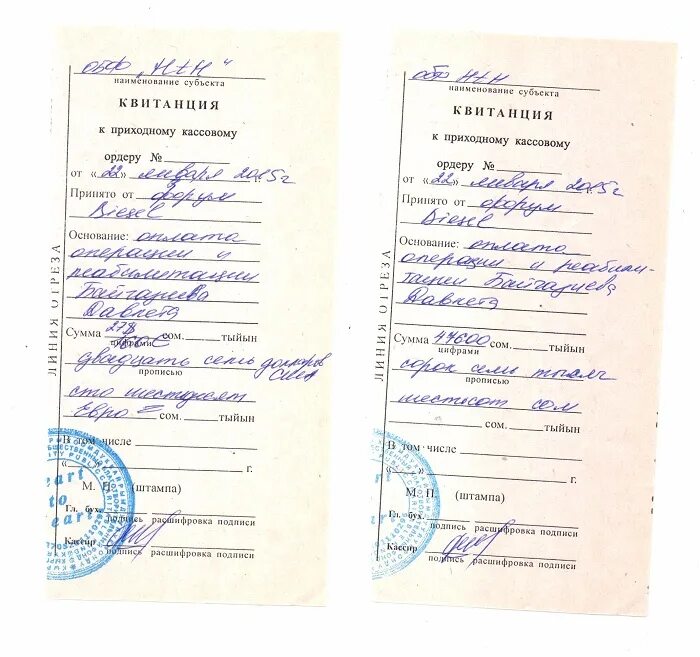 ОБФ „HtH“
наименование субъекта
КВИТАНЦИЯ
к приходному кассовому
ордеру №
от «22» января 2015г
Принято от форум
Diesel
Основание: оплата
операции и
реабилитации
Байгазиева
Давлета
Сумма 27$ сом. тыйын
цифрами
двадцать семь долларов
США
прописью
сто шестьдесят
Евро = сом. тыйын
В том числе
« » г.
М. П. (штампа)
Гл. бух.
подпись расшифровка подписи
Кассир
подпись расшифровка подписи
ЛИНИЯ ОТРЕЗА
eart
to
eart
ОБФ HtH
наименование субъекта
КВИТАНЦИЯ
к приходному кассовому
ордеру №
от «22» января 2015г
Принято от форум
Diesel
Основание: оплата
операции и реабили-
тации Байгазиева
Давлета
Сумма 47600 сом. тыйын
цифрами
сорок семь тысяч
прописью
шестьсот сом
сом. тыйын
В том числе
« » г.
М. П. (штампа)
Гл. бух.
подпись расшифровка подписи
Кассир
подпись расшифровка подписи
ЛИНИЯ ОТРЕЗА